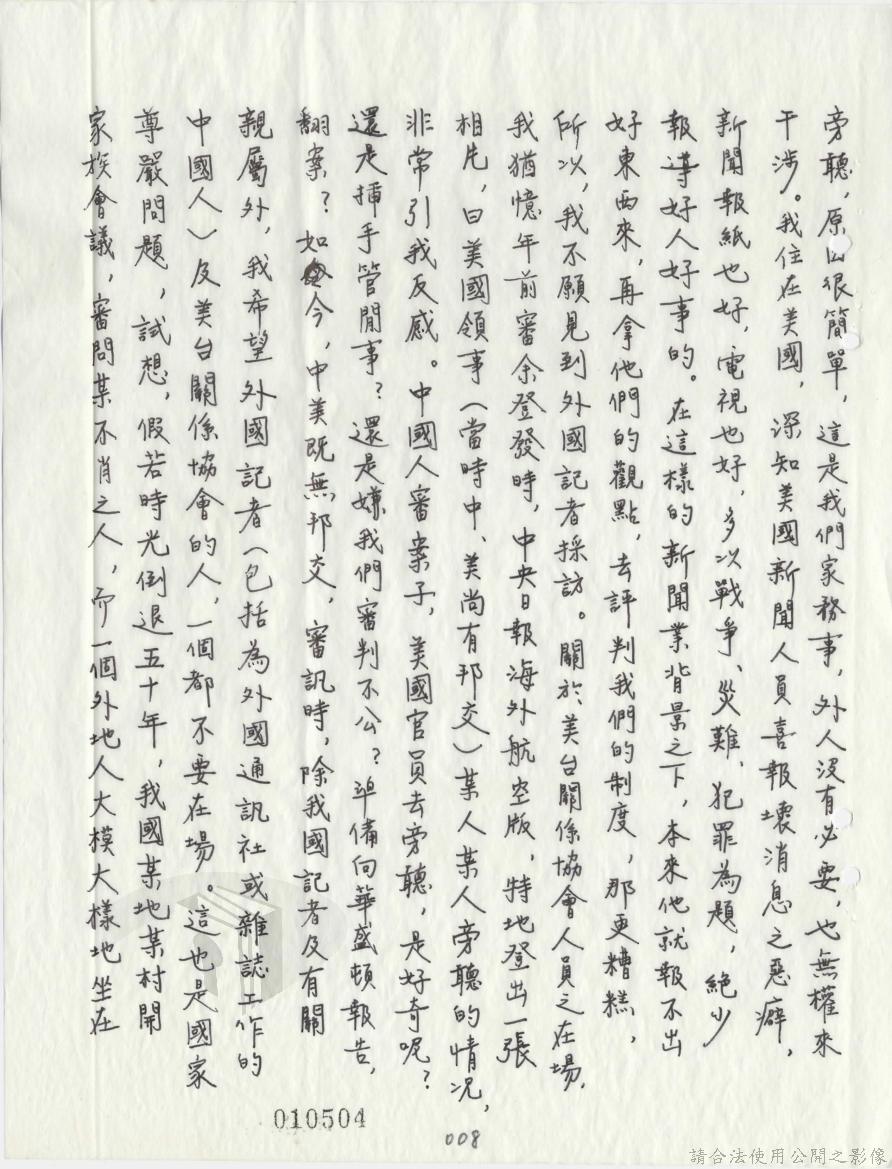 旁聽，原因很簡單，這是我們家務事，外人沒有必要，也無權來
干涉。我住在美國，深知美國新聞人員喜報壞消息之惡癖，
新聞報紙也好，電視也好，多以戰爭、災難、犯罪為題，絕少
報導好人好事的。在這樣的新聞業背景之下，本來他就報不出
好東西來，再拿他們的觀點，去評判我們的制度，那更糟糕，
所以，我不願見到外國記者採訪。關於美台關係協會人員之在場，
我猶憶年前審余登發時，中央日報海外航空版，特地登出一張
相片，曰美國領事（當時中、美尚有邦交）某人某人旁聽的情況，
非常引我反感。中國人審案子，美國官員去旁聽，是好奇呢？
還是插手管閒事？還是嫌我們審判不公？準備向華盛頓報告，
翻案？如今，中美既無邦交，審訊時，除我國記者及有關
親屬外，我希望外國記者（包括為外國通訊社或雜誌工作的
中國人）及美台關係協會的人，一個都不要在場。這也是國家
尊嚴問題，試想，假若時光倒退五十年，我國某地某村開
家族會議，審問某不肖之人，而一個外地人大模大樣地坐在
010504
008
請合法使用公開之影像